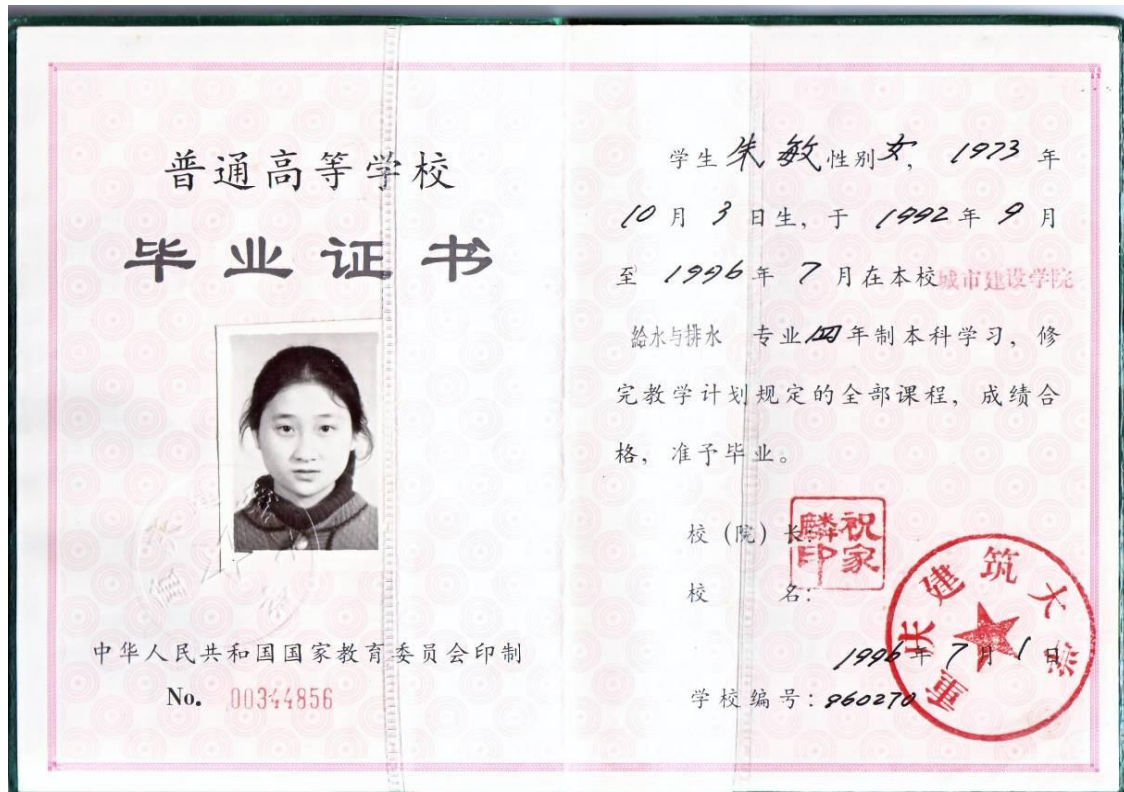 普通高等学校
毕业证书
中华人民共和国国家教育委员会印制
No. 00344856
学生朱敏性别女，1973年
10月3日生，于1992年9月
至1996年7月在本校城市建设学院
給水与排水 专业四年制本科学习，修
完教学计划规定的全部课程，成绩合
格，准予毕业。
校（院）长：
祝家麟印
校 名：
重庆建筑大学
1996年7月1日
学校编号：960270